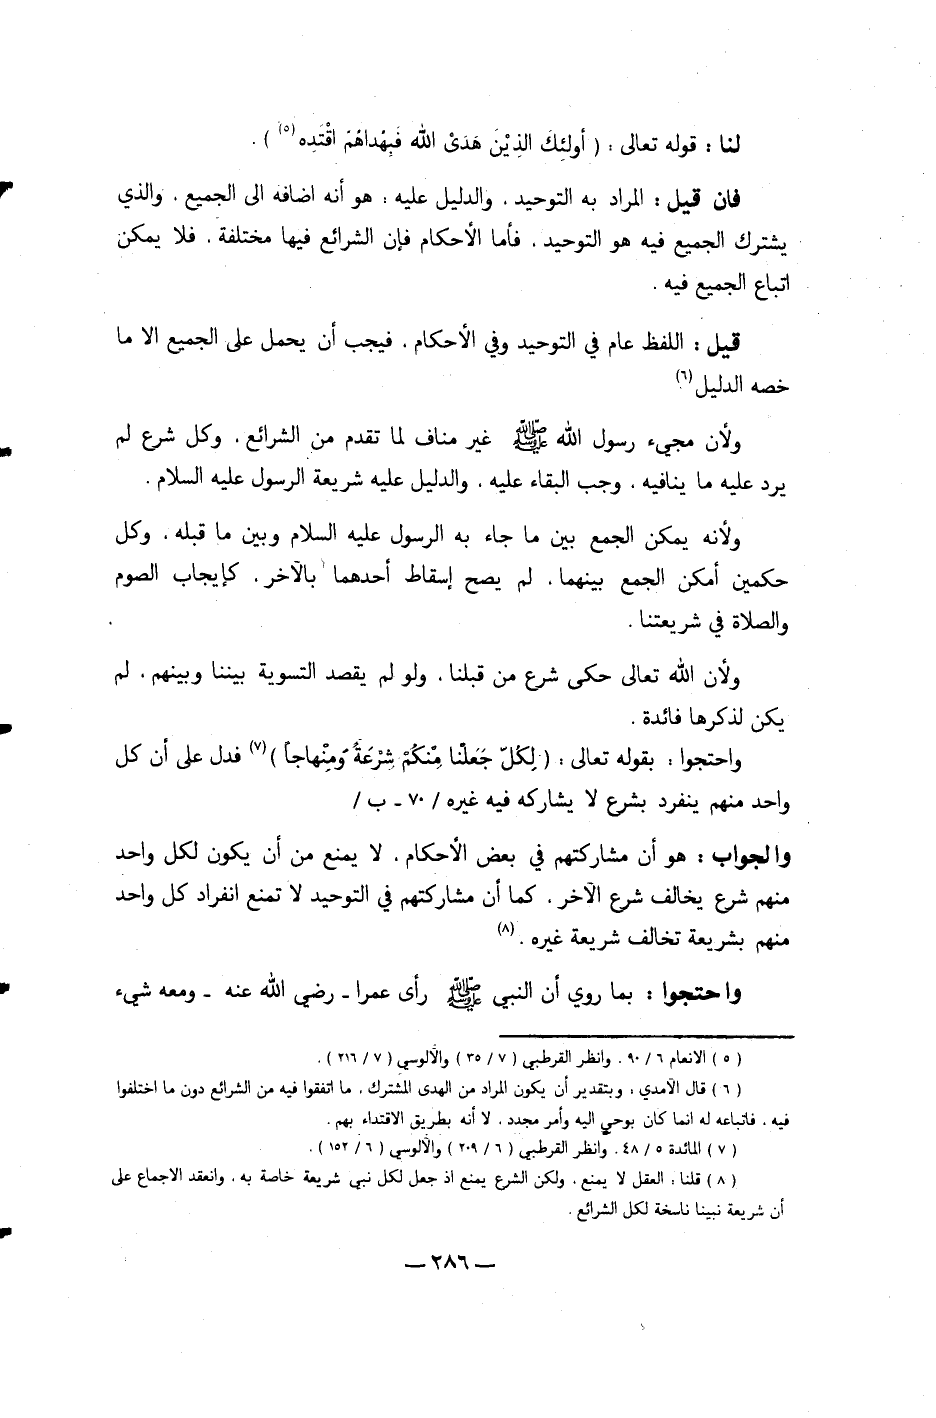 لنا : قوله تعالى : ( أولئِكَ الذِيْنَ هَدَىْ الله فَبِهْداهُمْ اقْتَدِه(٥) ) .
فان قيل : المراد به التوحيد ، والدليل عليه : هو أنه اضافه الى الجميع ، والذي
يشترك الجميع فيه هو التوحيد ، فأما الأحكام فإن الشرائع فيها مختلفة ، فلا يمكن
اتباع الجميع فيه .
قيل : اللفظ عام في التوحيد وفي الأحكام ، فيجب أن يحمل على الجميع الا ما
خصه الدليل(٦)
ولأن مجيء رسول الله ﷺ غير مناف لما تقدم من الشرائع ، وكل شرع لم
يرد عليه ما ينافيه ، وجب البقاء عليه ، والدليل عليه شريعة الرسول عليه السلام .
ولأنه يمكن الجمع بين ما جاء به الرسول عليه السلام وبين ما قبله ، وكل
حكمين أمكن الجمع بينهما ، لم يصح إسقاط أحدهما بالآخر ، كإيجاب الصوم
والصلاة في شريعتنا .
ولأن الله تعالى حكى شرع من قبلنا ، ولو لم يقصد التسوية بيننا وبينهم ، لم
يكن لذكرها فائدة .
واحتجوا : بقوله تعالى : ( لِكُلّ جَعَلْنا مِنْكُمْ شِرْعَةً وَمِنْهاجاً )(٧) فدل على أن كل
واحد منهم ينفرد بشرع لا يشاركه فيه غيره / ٧٠ ـ ب /
والجواب : هو أن مشاركتهم في بعض الأحكام ، لا يمنع من أن يكون لكل واحد
منهم شرع يخالف شرع الآخر ، كما أن مشاركتهم في التوحيد لا تمنع انفراد كل واحد
منهم بشريعة تخالف شريعة غيره .(٨)
واحتجوا : بما روي أن النبي ﷺ رأى عمرا ـ رضي الله عنه ـ ومعه شيء
( ٥ ) الانعام ٦ / ٩٠ . وانظر القرطبي ( ٧ / ٣٥ ) والآلوسي ( ٧ / ٢١٦ ) .
( ٦ ) قال الآمدي : وبتقدير أن يكون المراد من الهدى المشترك ، ما اتفقوا فيه من الشرائع دون ما اختلفوا
فيه ، فاتباعه له انما كان بوحي اليه وأمر مجدد ، لا أنه بطريق الاقتداء بهم .
( ٧ ) المائدة ٥ / ٤٨ . وانظر القرطبي ( ٦ / ٢٠٩ ) والآلوسي ( ٦ / ١٥٢ ) .
( ٨ ) قلنا : العقل لا يمنع ، ولكن الشرع يمنع اذ جعل لكل نبي شريعة خاصة به ، وانعقد الاجماع على
أن شريعة نبينا ناسخة لكل الشرائع .
— ٢٨٦ —